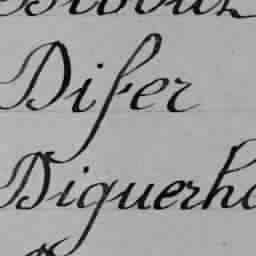 Difer
Diguerh